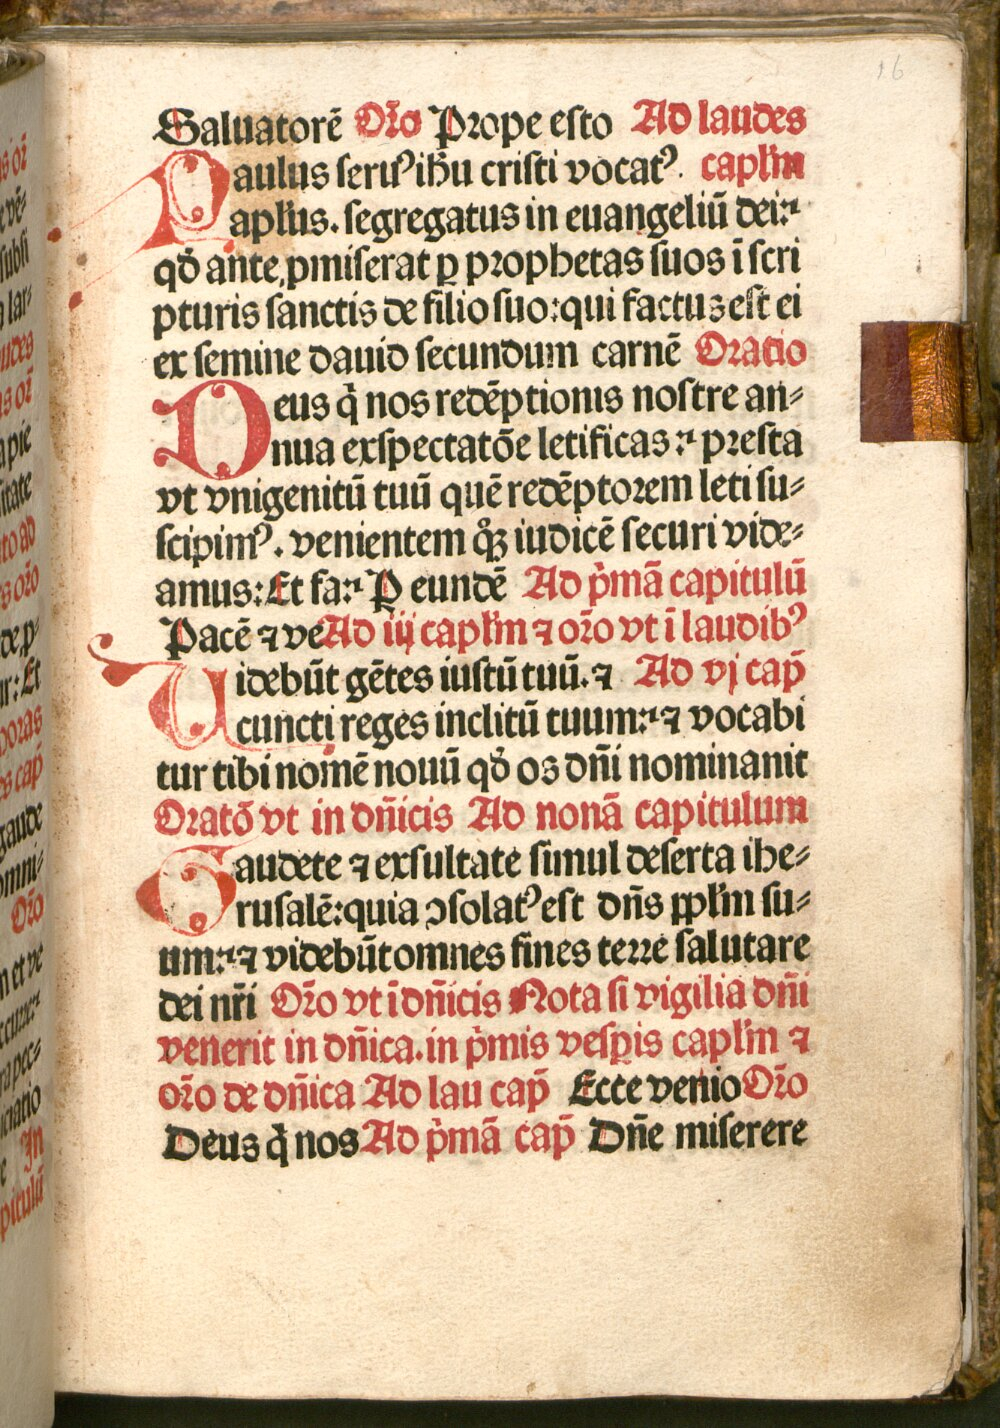 16
Saluatorē Or̄o Prope esto Ad laudes
Paulus seruꝰ ihū cristi vocatꝰ. capl'm
apl'us. segregatus in euangeliū dei:
qd̄ ante ꝓmiserat ꝑ prophetas suos ī scri
pturis sanctis de filio suo: qui factus est ei
ex semine dauid secundum carnē Oratio
Deus q̄ nos redēptionis nostre an⸗
nua exspectatōe letificas: presta
vt vnigenitū tuū quē redēptorem leti su⸗
scipimꝰ. venientem qͦꝫ iudicē securi vide⸗
amus: Et fa: P eundē Ad p̄mā capitulū
Pacē ⁊ ve Ad iij capl'm ⁊ or̄o vt ī laudibꝰ
Uidebūt gētes iustū tuū. ⁊ Ad vj cap̄
cuncti reges inclitū tuum: ⁊ vocabi
tur tibi nomē nouū qd̄ os dn̄i nominauit
Oratō vt in dn̄icis Ad nonā capitulum
Gaudete ⁊ exsultate simul deserta ihe⸗
rusalē: quia ꝯsolatꝰ est dn̄s ppl'm su⸗
um: ⁊ videbūt omnes fines terre salutare
dei nr̄i Or̄o vt ī dn̄icis Nota si vigilia dn̄i
venerit in dn̄ica. in p̄mis vesꝑis capl'm ⁊
or̄o de dn̄ica Ad lau cap̄ Ecce venio Or̄o
Deus q̄ nos Ad p̄mā cap̄ Dn̄e miserere